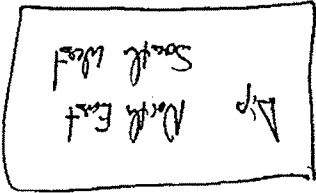 Dip North East
South West